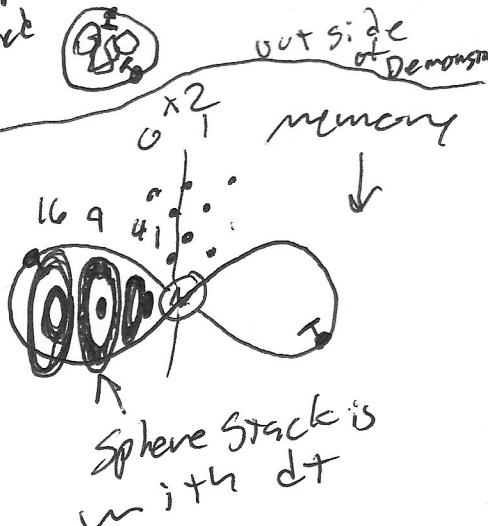 I
out side
of Demons
x2
0 1
memory
16 9 4 1
I
Sphere Stack is
with dt